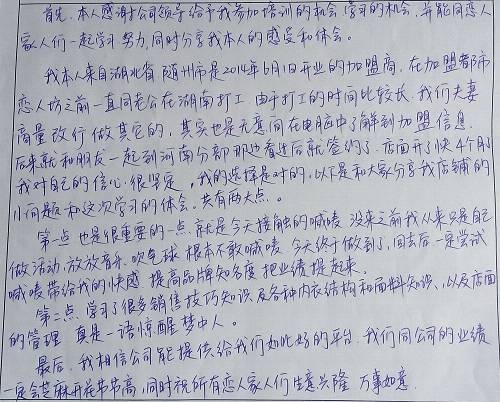 首先，本人感谢公司领导给予我参加培训的机会 学习的机会，并能同恋人
家人们一起学习努力，同时分享我本人的感受和体会。
我本人来自湖北省 随州市是2014年6月1日开业的加盟商，在加盟都市
恋人坊之前一直同老公在湖南打工 由于打工的时间比较长，我们夫妻
商量改行做其它的，其实也是无意间在电脑中了解到加盟信息，
后来就和朋友一起到河南分部那边看过后就签约了。店面开了快4个月
我对自己的信心 很坚定，我的选择是对的，以下是和大家分享我店铺的
小问题和这次学习的体会。共有两大点。
第一点 也是很重要的一点 就是今天接触的喊麦 没来之前我从来只是自己
做活动，放放音乐、吹气球 根本不敢喊麦 今天终于做到了，回去后一定尝试
喊麦带给我的快感 提高品牌知名度 把业绩提起来。
第二点 学习了很多销售技巧知识 及各种内衣结构和面料知识，以及店面
的管理 真是一语惊醒梦中人。
最后，我相信公司能提供给我们如此好的平台，我们同公司的业绩
一定会芝麻开花节节高，同时祝所有恋人家人们生意兴隆 万事如意.